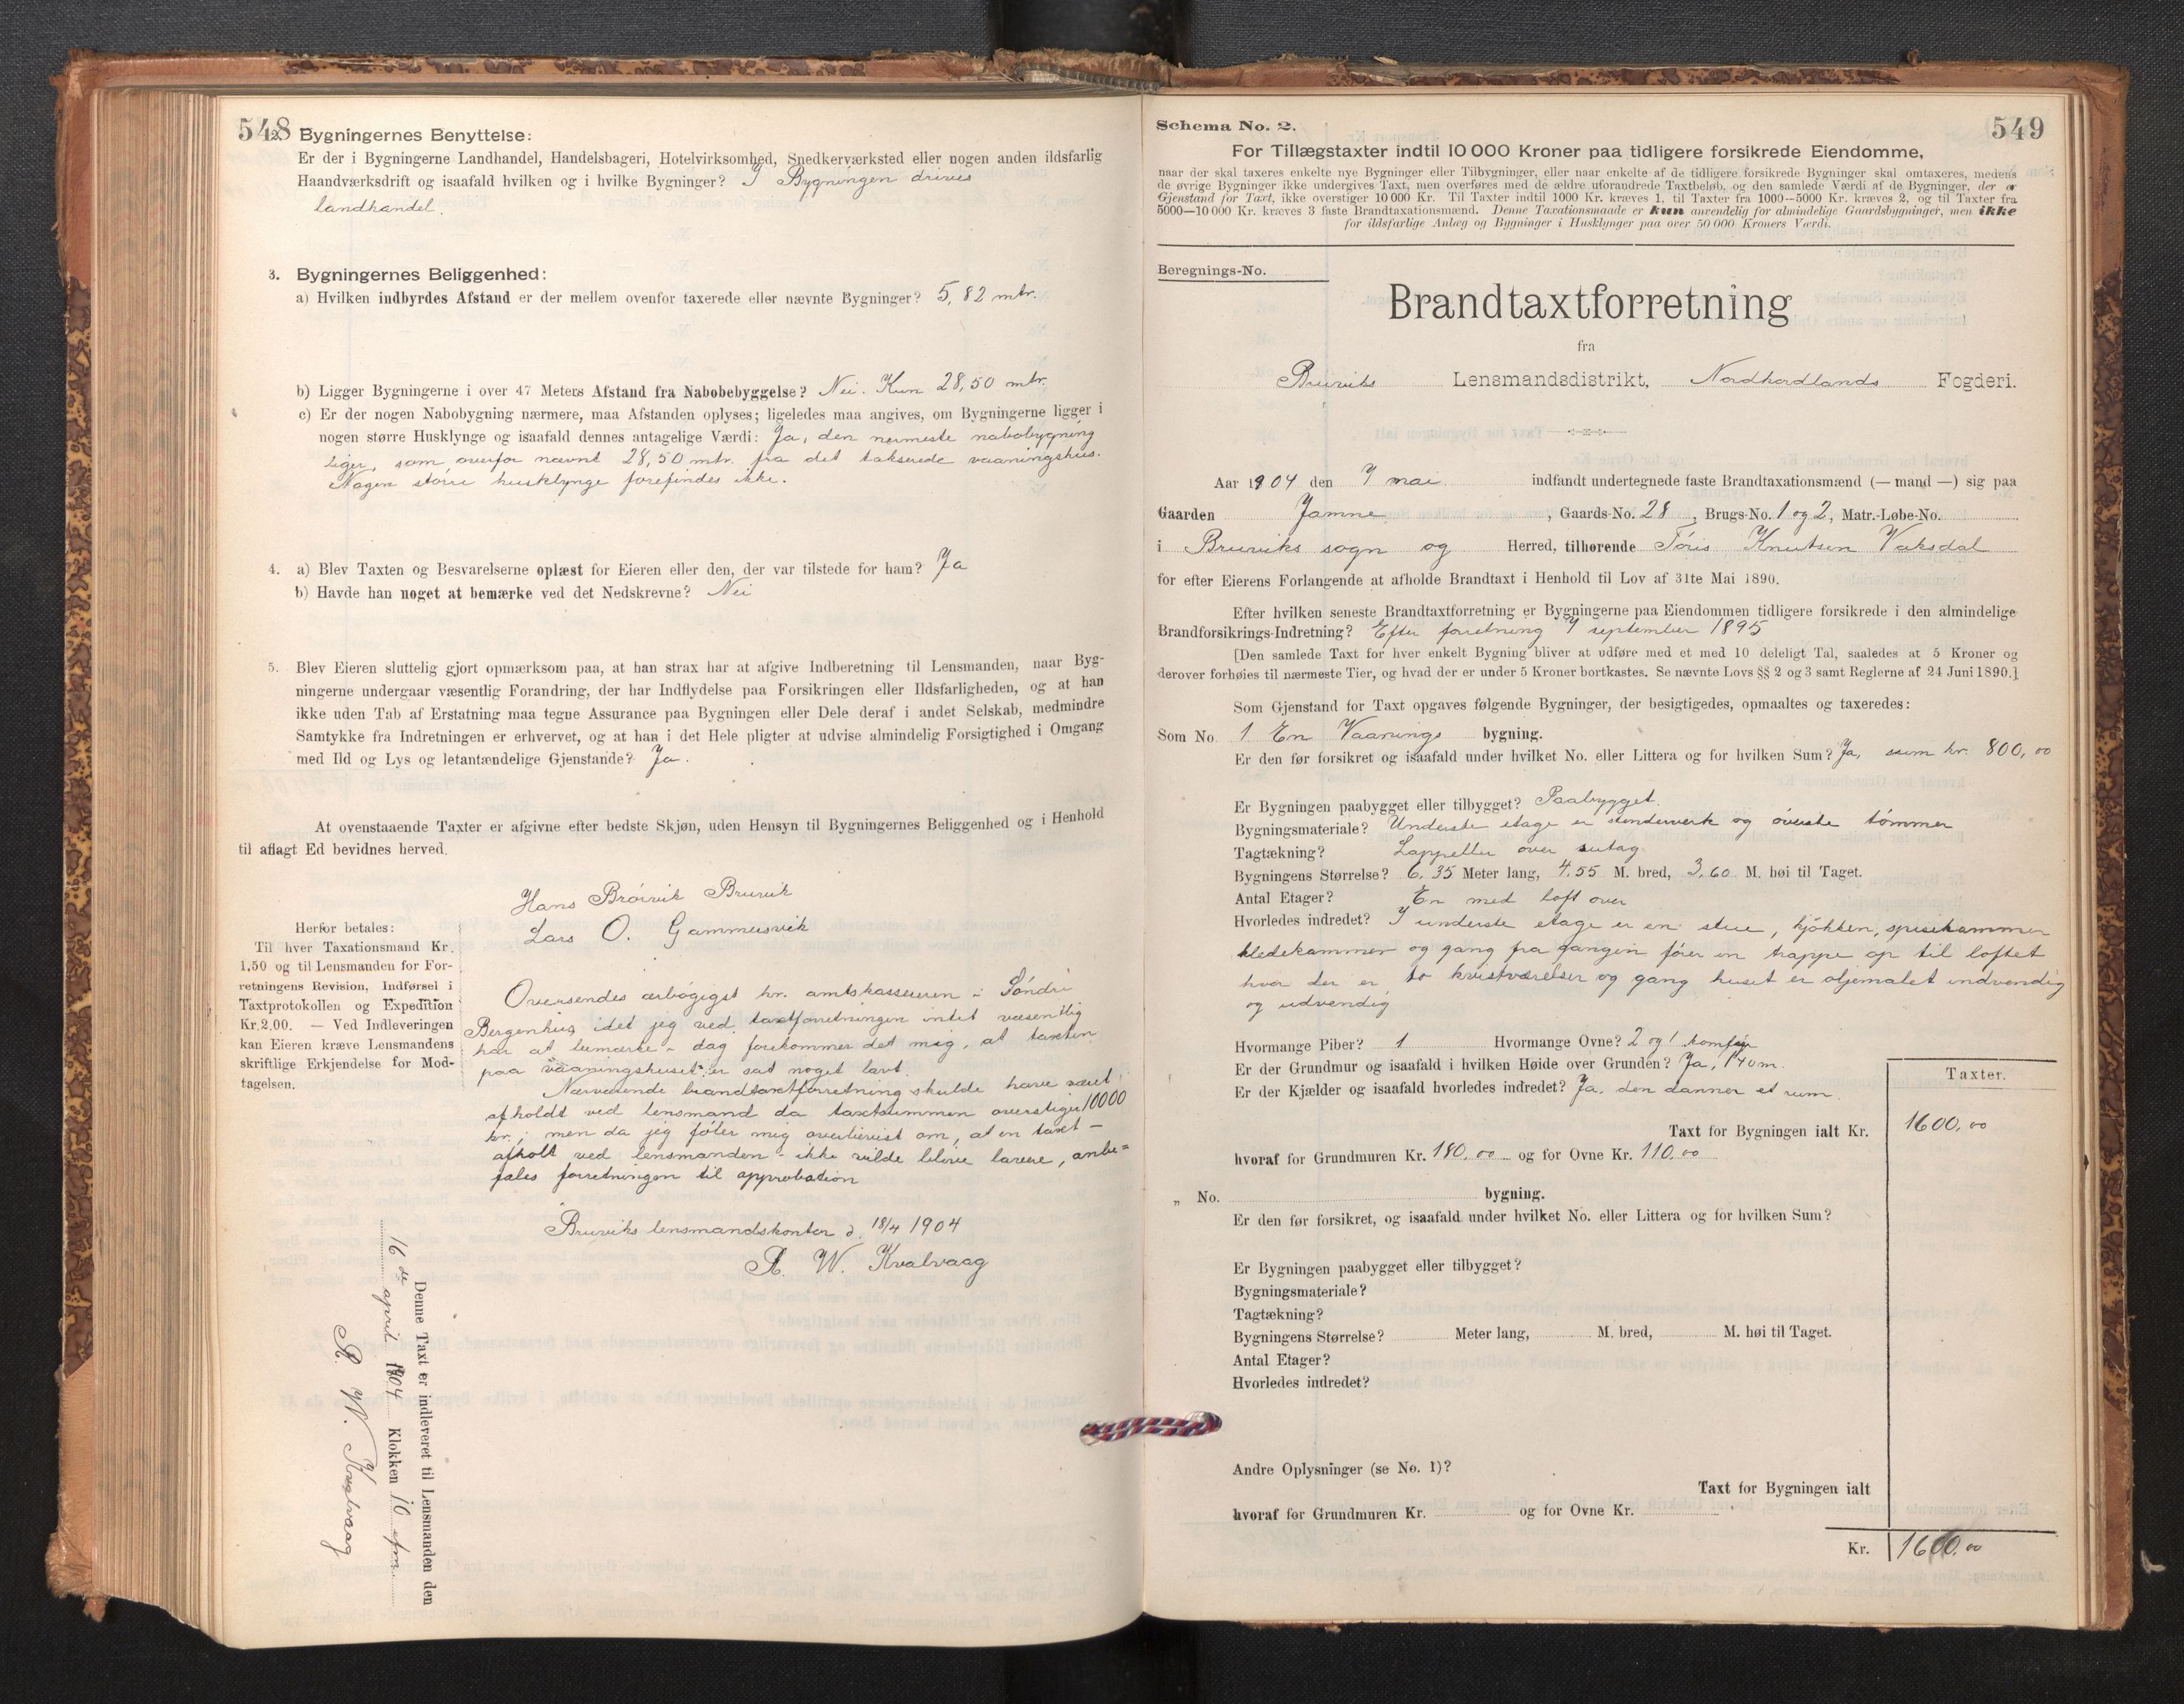 548
2. Bygningernes Benyttelse:
Er der i Bygningerne Landhandel, Handelsbageri, Hotelvirksomhed, Snedkerværksted eller nogen anden ildsfarlig
Haandværksdrift og isaafald hvilken og i hvilke Bygninger? I Bygningen drives
landhandel.
3. Bygningernes Beliggenhed:
a) Hvilken indbyrdes Afstand er der mellem ovenfor taxerede eller nævnte Bygninger? 5,82 mtr.
b) Ligger Bygningerne i over 47 Meters Afstand fra Nabobebyggelse? Nei. Kun 28,50 mtr.
c) Er der nogen Nabobygning nærmere, maa Afstanden oplyses; ligeledes maa angives, om Bygningerne ligger i
nogen større Husklynge og isaafald dennes antagelige Værdi: Ja, den nermeste nabobygning
liger, som overfor nævnt 28,50 mtr. fra det takserede vaaningshus.
Nogen større husklynge forefindes ikke.
4. a) Blev Taxten og Besvarelserne oplæst for Eieren eller den, der var tilstede for ham? Ja
b) Havde han noget at bemærke ved det Nedskrevne? Nei
5. Blev Eieren sluttelig gjort opmærksom paa, at han strax har at afgive Indberetning til Lensmanden, naar Byg-
ningerne undergaar væsentlig Forandring, der har Indflydelse paa Forsikringen eller Ildsfarligheden, og at han
ikke uden Tab af Erstatning maa tegne Assurance paa Bygningen eller Dele deraf i andet Selskab, medmindre
Samtykke fra Indretningen er erhvervet, og at han i det Hele pligter at udvise almindelig Forsigtighed i Omgang
med Ild og Lys og letantændelige Gjenstande? Ja.
At ovenstaaende Taxter er afgivne efter bedste Skjøn, uden Hensyn til Bygningernes Beliggenhed og i Henhold
til aflagt Ed bevidnes herved.
Hans Brørvik Bruvik
Lars O. Gammersvik
Herfor betales:
Til hver Taxationsmand Kr.
1,50 og til Lensmanden for For-
retningens Revision, Indførsel i
Taxtprotokollen og Expedition
Kr. 2,00. — Ved Indleveringen
kan Eieren kræve Lensmandens
skriftlige Erkjendelse for Mod-
tagelsen.
Oversendes ærbøgigst hr. amtskassereren i Søndre
Bergenhus, idet jeg ved taxtforretningen intet væsentlig
har at bemærke - dog forekommer det mig, at taxten
paa vaaningshuset er sat noget lavt.
Nærværende brandtaxtforretning skulde have været
afholdt ved lensmand da taxtsummen overstiger 10000
kr.; men da jeg føler mig overbevist om, at en taxt -
afholt ved lensmanden - ikke vilde blive lavere, anbe=
fales forretningen til approbation
Bruviks lensmandskontor d. 18/4 1904
A. W. Kvalvaag
Denne Taxt er indleveret til Lensmanden den
16de april 1904 Klokken 10 fm.
A. W. Kvalvaag
549
Schema No. 2.
For Tillægstaxter indtil 10 000 Kroner paa tidligere forsikrede Eiendomme,
naar der skal taxeres enkelte nye Bygninger eller Tilbygninger, eller naar enkelte af de tidligere forsikrede Bygninger skal omtaxeres, medens
de øvrige Bygninger ikke undergives Taxt, men overføres med de ældre uforandrede Taxtbeløb, og den samlede Værdi af de Bygninger, der er
Gjenstand for Taxt, ikke overstiger 10 000 Kr. Til Taxter indtil 1000 Kr. kræves 1, til Taxter fra 1000—5000 Kr. kræves 2, og til Taxter fra
5000—10 000 Kr. kræves 3 faste Brandtaxationsmænd. Denne Taxationsmaade er kun anvendelig for almindelige Gaardsbygninger, men ikke
for ildsfarlige Anlæg og Bygninger i Husklynger paa over 50 000 Kroners Værdi.
Beregnings-No.
Brandtaxtforretning
fra
Bruviks Lensmandsdistrikt, Nordhordlands Fogderi.
Aar 1904 den 7 mai indfandt undertegnede faste Brandtaxationsmænd (— mand —) sig paa
Gaarden Jamne, Gaards-No. 28, Brugs-No. 1 og 2, Matr.-Løbe-No.
i Bruviks sogn og Herred, tilhørende Tøris Knutsen Vaksdal
for efter Eierens Forlangende at afholde Brandtaxt i Henhold til Lov af 31te Mai 1890.
Efter hvilken seneste Brandtaxtforretning er Bygningerne paa Eiendommen tidligere forsikrede i den almindelige
Brandforsikrings-Indretning? Efter forretning 7 september 1895
[Den samlede Taxt for hver enkelt Bygning bliver at udføre med et med 10 deleligt Tal, saaledes at 5 Kroner og
derover forhøies til nærmeste Tier, og hvad der er under 5 Kroner bortkastes. Se nævnte Lovs §§ 2 og 3 samt Reglerne af 24 Juni 1890.]
Som Gjenstand for Taxt opgaves følgende Bygninger, der besigtigedes, opmaaltes og taxeredes:
Som No. 1 En Vaanings bygning.
Er den før forsikret og isaafald under hvilket No. eller Littera og for hvilken Sum? Ja, sum kr. 800,00
Er Bygningen paabygget eller tilbygget? Paabygget.
Bygningsmateriale? Underste etage er stenderverk og øverste tømmer
Tagtækning? Lappeller over sutag
Bygningens Størrelse? 6,35 Meter lang, 4,55 M. bred, 3,60 M. høi til Taget.
Antal Etager? En med loft over
Hvorledes indredet? I underste etage er en stue, kjøkken, spisekammer
kledekammer og gang fra gangen fører en trappe op til loftet
hvor der er to kvistværelser og gang huset er oljemalet indvendig
og udvendig
Hvormange Piber? 1 Hvormange Ovne? 2 og 1 komfyr
Er der Grundmur og isaafald i hvilken Høide over Grunden? Ja, 1,40 m.
Er der Kjælder og isaafald hvorledes indredet? Ja. den danner et rum.
Taxter.
Taxt for Bygningen ialt Kr. 1600,00
hvoraf for Grundmuren Kr. 180,00 og for Ovne Kr. 110,00
„ No. bygning.
Er den før forsikret, og isaafald under hvilket No. eller Littera og for hvilken Sum?
Er Bygningen paabygget eller tilbygget?
Bygningsmateriale?
Tagtækning?
Bygningens Størrelse? Meter lang, M. bred, M. høi til Taget.
Antal Etager?
Hvorledes indredet?
Andre Oplysninger (se No. 1)?
Taxt for Bygningen ialt
hvoraf for Grundmuren Kr. og for Ovne Kr.
Kr. 1600,00